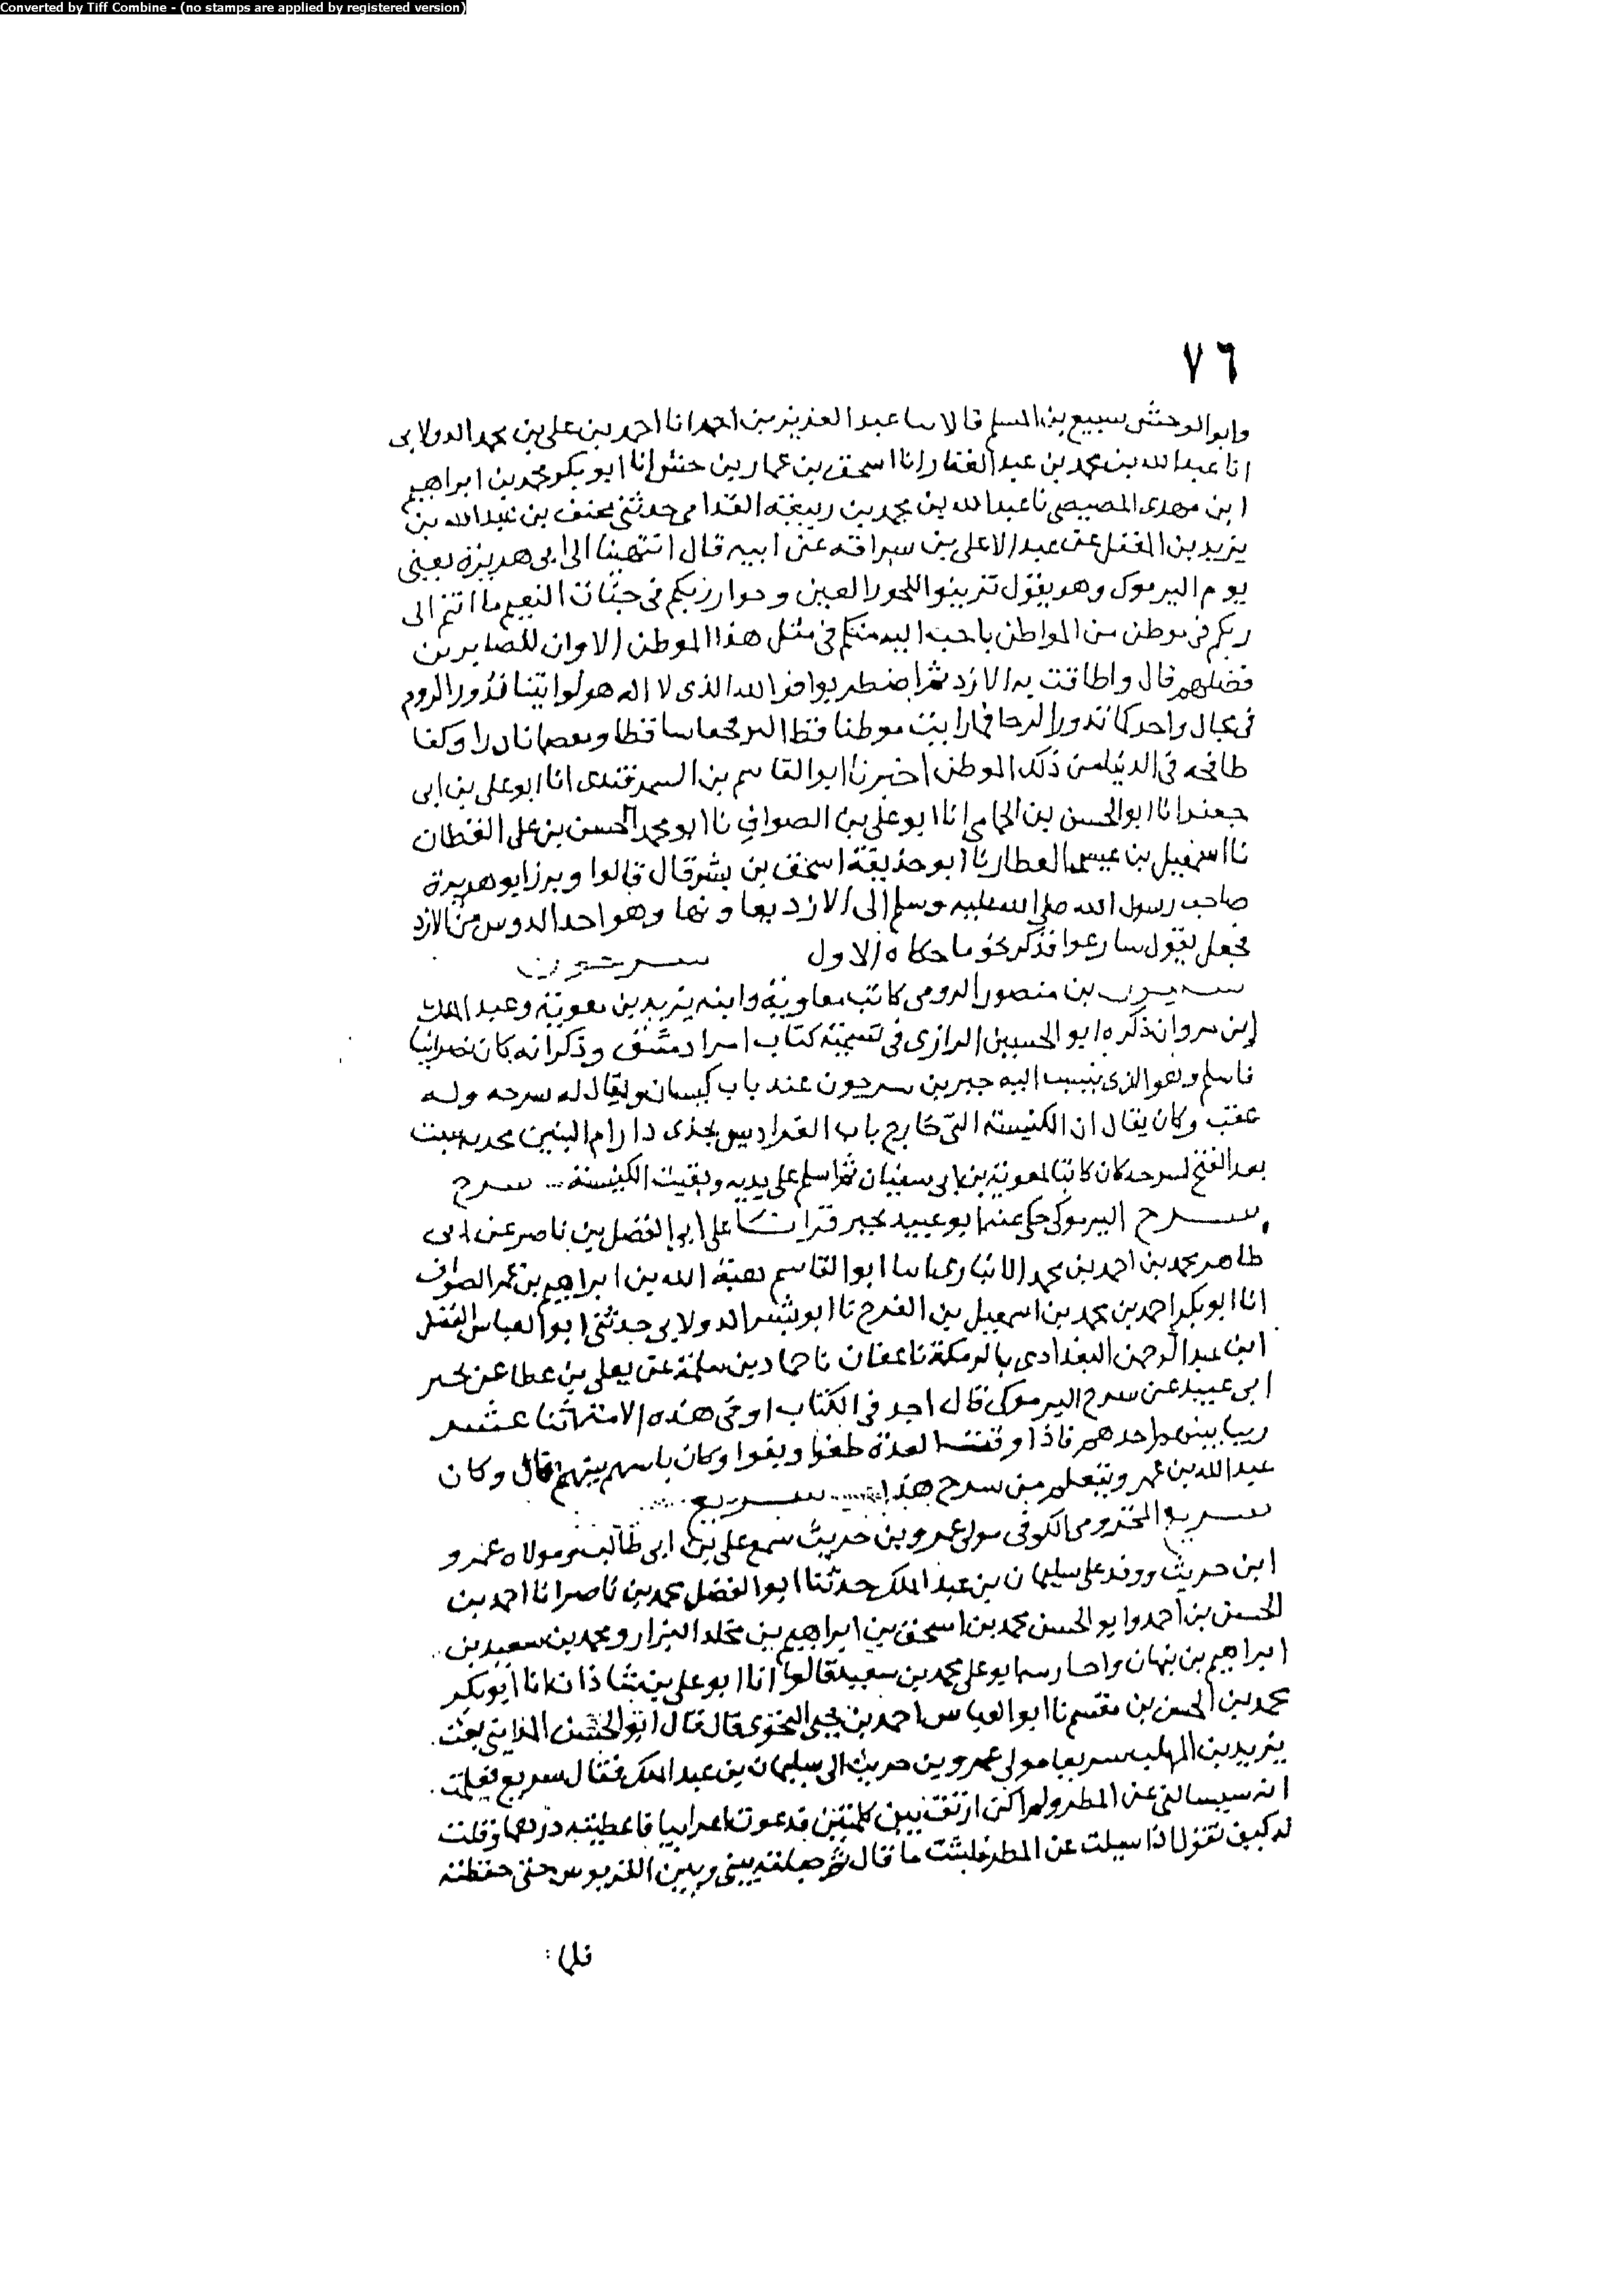 Converted by Tiff Combine - (no stamps are applied by registered version)
٧٦
وابو الوحش سبيع بن المسلم قالا سا عبد العزيز بن احمد انا احمد بن على بن محمد الدولابى
انا عبد الله بن محمد بن عبد الغفار انا اسحق بن عمار بن حنش انا ابو بكر محمد بن ابراهيم
ابن مهدى المصيصى نا عبد الله بن محمد بن ربيعة القدامى حدثنى محنف بن عبد الله بن
يزيد بن المغفل عن عبد الاعلى بن سراقه عن ابيه قال انتهينا الى ابى هريرة يعنى
يوم اليرموك وهو يقول تزينوا للحور العين وجوار ربكم فى جنات النعيم ما انتم الى
ربكم فى موطن من المواطن باحب اليه منكم فى مثل هذا الموطن الا وان للصابرين
فضلهم قال واطافت به الازد ثم اضطربوا فوالله الذى لا اله هو لرايتنا ندور الروم
فى مجال واحد كما تدور الرحا فما رايت موطنا قط اكثر قحفا ساقطا ومعصما نادرا وكفا
طائحه فى الدنيا من ذلك الموطن اخبرنا ابو القاسم بن السمرقندى انا ابو على بن ابى
جعفر انا ابو الحسن بن الحمامى انا ابو على بن الصواف نا ابو محمد الحسن بن على القطان
نا اسمعيل بن عيسى العطار نا ابو حذيفة اسحق بن بشر قال قالوا وبرز ابو هريرة
صاحب رسول الله صلى الله عليه وسلم الى الازد يعاونها وهو احد الدوس من الازد
فجعل يقول سارعوا فذكر نحو ما حكاه الاول سرجون
سرجون بن منصور الرومى كاتب معاوية وابنه يزيد بن معوية وعبد الملك
ابن مروان ذكره ابو الحسين الرازى فى تسمية كتاب امرا دمشق وذكر انه كان نصرانيا
فاسلم وهو الذى ينسب اليه جير بن سرجون عند باب كيسان ويقال له سرحه وله
عقب وكان يقال ان الكنيسة التى خارج باب الفراديس بحذى دار ام البنين محدثه بنيت
بعد الفتح لسرحه كان كاتبا لمعوية بن ابى سفيان ثم اسلم على يديه وبقيت الكنيسة ... سرح
سرح اليرموكى حكى عنه ابو عبيد بحير قرات على ابى الفضل بن ناصر عن ابى
طاهر محمد بن احمد بن محمد الانبارى انا ابو القاسم هبة الله بن ابراهيم بن عمر الصواف
انا ابو بكر احمد بن محمد بن اسمعيل بن الفرج نا ابو بشر الدولابى حدثنى ابو العباس الفضل
ابن عبد الرحمن البغدادى بالرمكة نا عفان نا حماد بن سلمة عن يعلى بن عطا عن بحير
ابى عبيد عن سرح اليرموكى قال اجد فى الكتاب او فى هذه الامة اثنا عشر
ربيا بينى احدهم فاذا وقت العدة طغوا وبغوا وكان باسهم بينهم قال وكان
عبد الله بن عمرو يتعلم من سرح هذا ... سريع ...
سريع المخزومى الكوفى مولى عمرو بن حريث سمع على بن ابى طالب ومولاه عمرو
ابن حريث ووفد على سليمان بن عبد الملك حدثنا ابو الفضل محمد بن ناصر انا احمد بن
الحسن بن احمد وابو الحسن محمد بن اسحق بن ابراهيم بن مخلد البزار ومحمد بن سعيد بن
ابراهيم بن نبهان ابو على محمد بن سعيد قالوا انا ابو على بن شاذان انا ابو بكر
محمد بن الحسن بن مقسم نا ابو العباس احمد بن يحيى النحوى قال قال ابو الحسن المداينى بعث
يزيد بن المهلب سريعا مولى عمرو بن حريث الى سليمان بن عبد الملك فقال سريع فعلمت
انه سيسالنى عن المطر ولم اكن ارتق بين كلمتين فدعوت اعرابيا فاعطيته درهما وقلت
له كيف تقول اذا سيلت عن المطر فلبثت ما قال ثم جعلته بينى وبين القربوس حتى حفظته
فلما